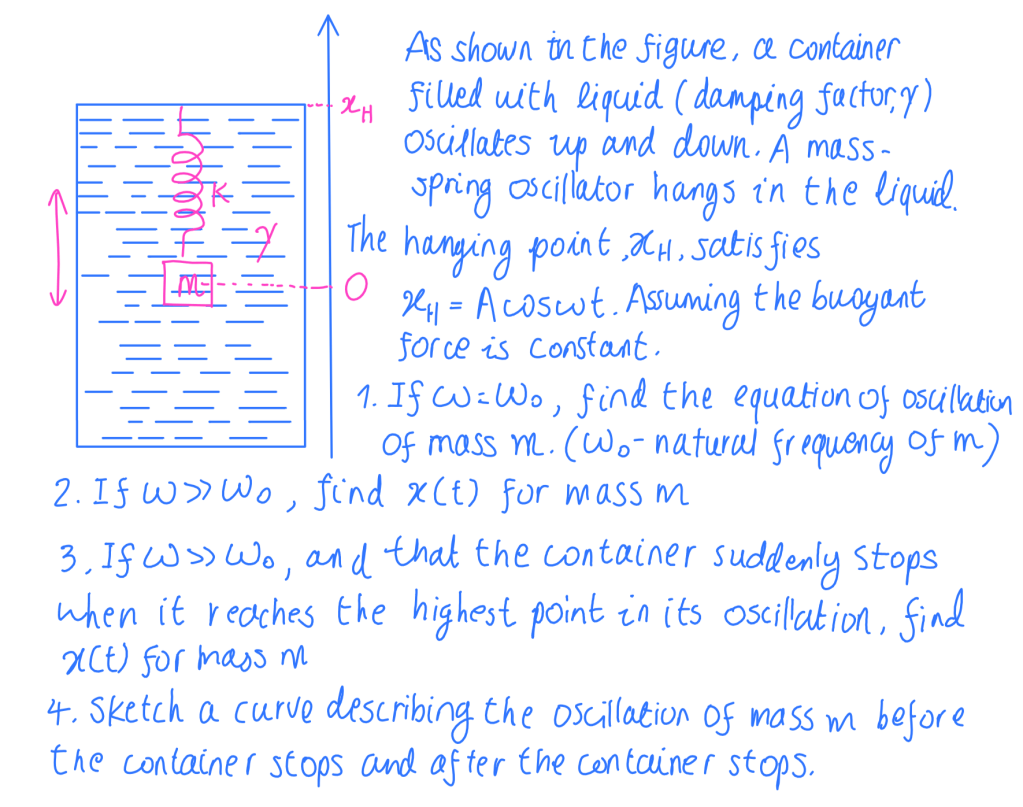 As shown in the figure, a container
filled with liquid (damping factor, γ)
oscillates up and down. A mass-
spring oscillator hangs in the liquid.
The hanging point, xH, satisfies
xH = A cosωt. Assuming the buoyant
force is constant.
xH
K
γ
m
O
1. If ω=ω₀, find the equation of oscillation
of mass m. (ω₀-natural frequency of m)
2. If ω>>ω₀, find x(t) for mass m
3. If ω>>ω₀, and that the container suddenly stops
when it reaches the highest point in its oscillation, find
x(t) for mass m
4. Sketch a curve describing the oscillation of mass m before
the container stops and after the container stops.